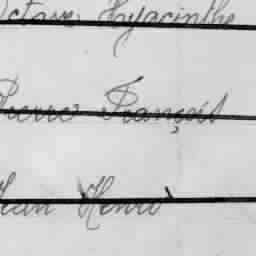 Octave Hyacinthe
Pierre François
Jean Henri